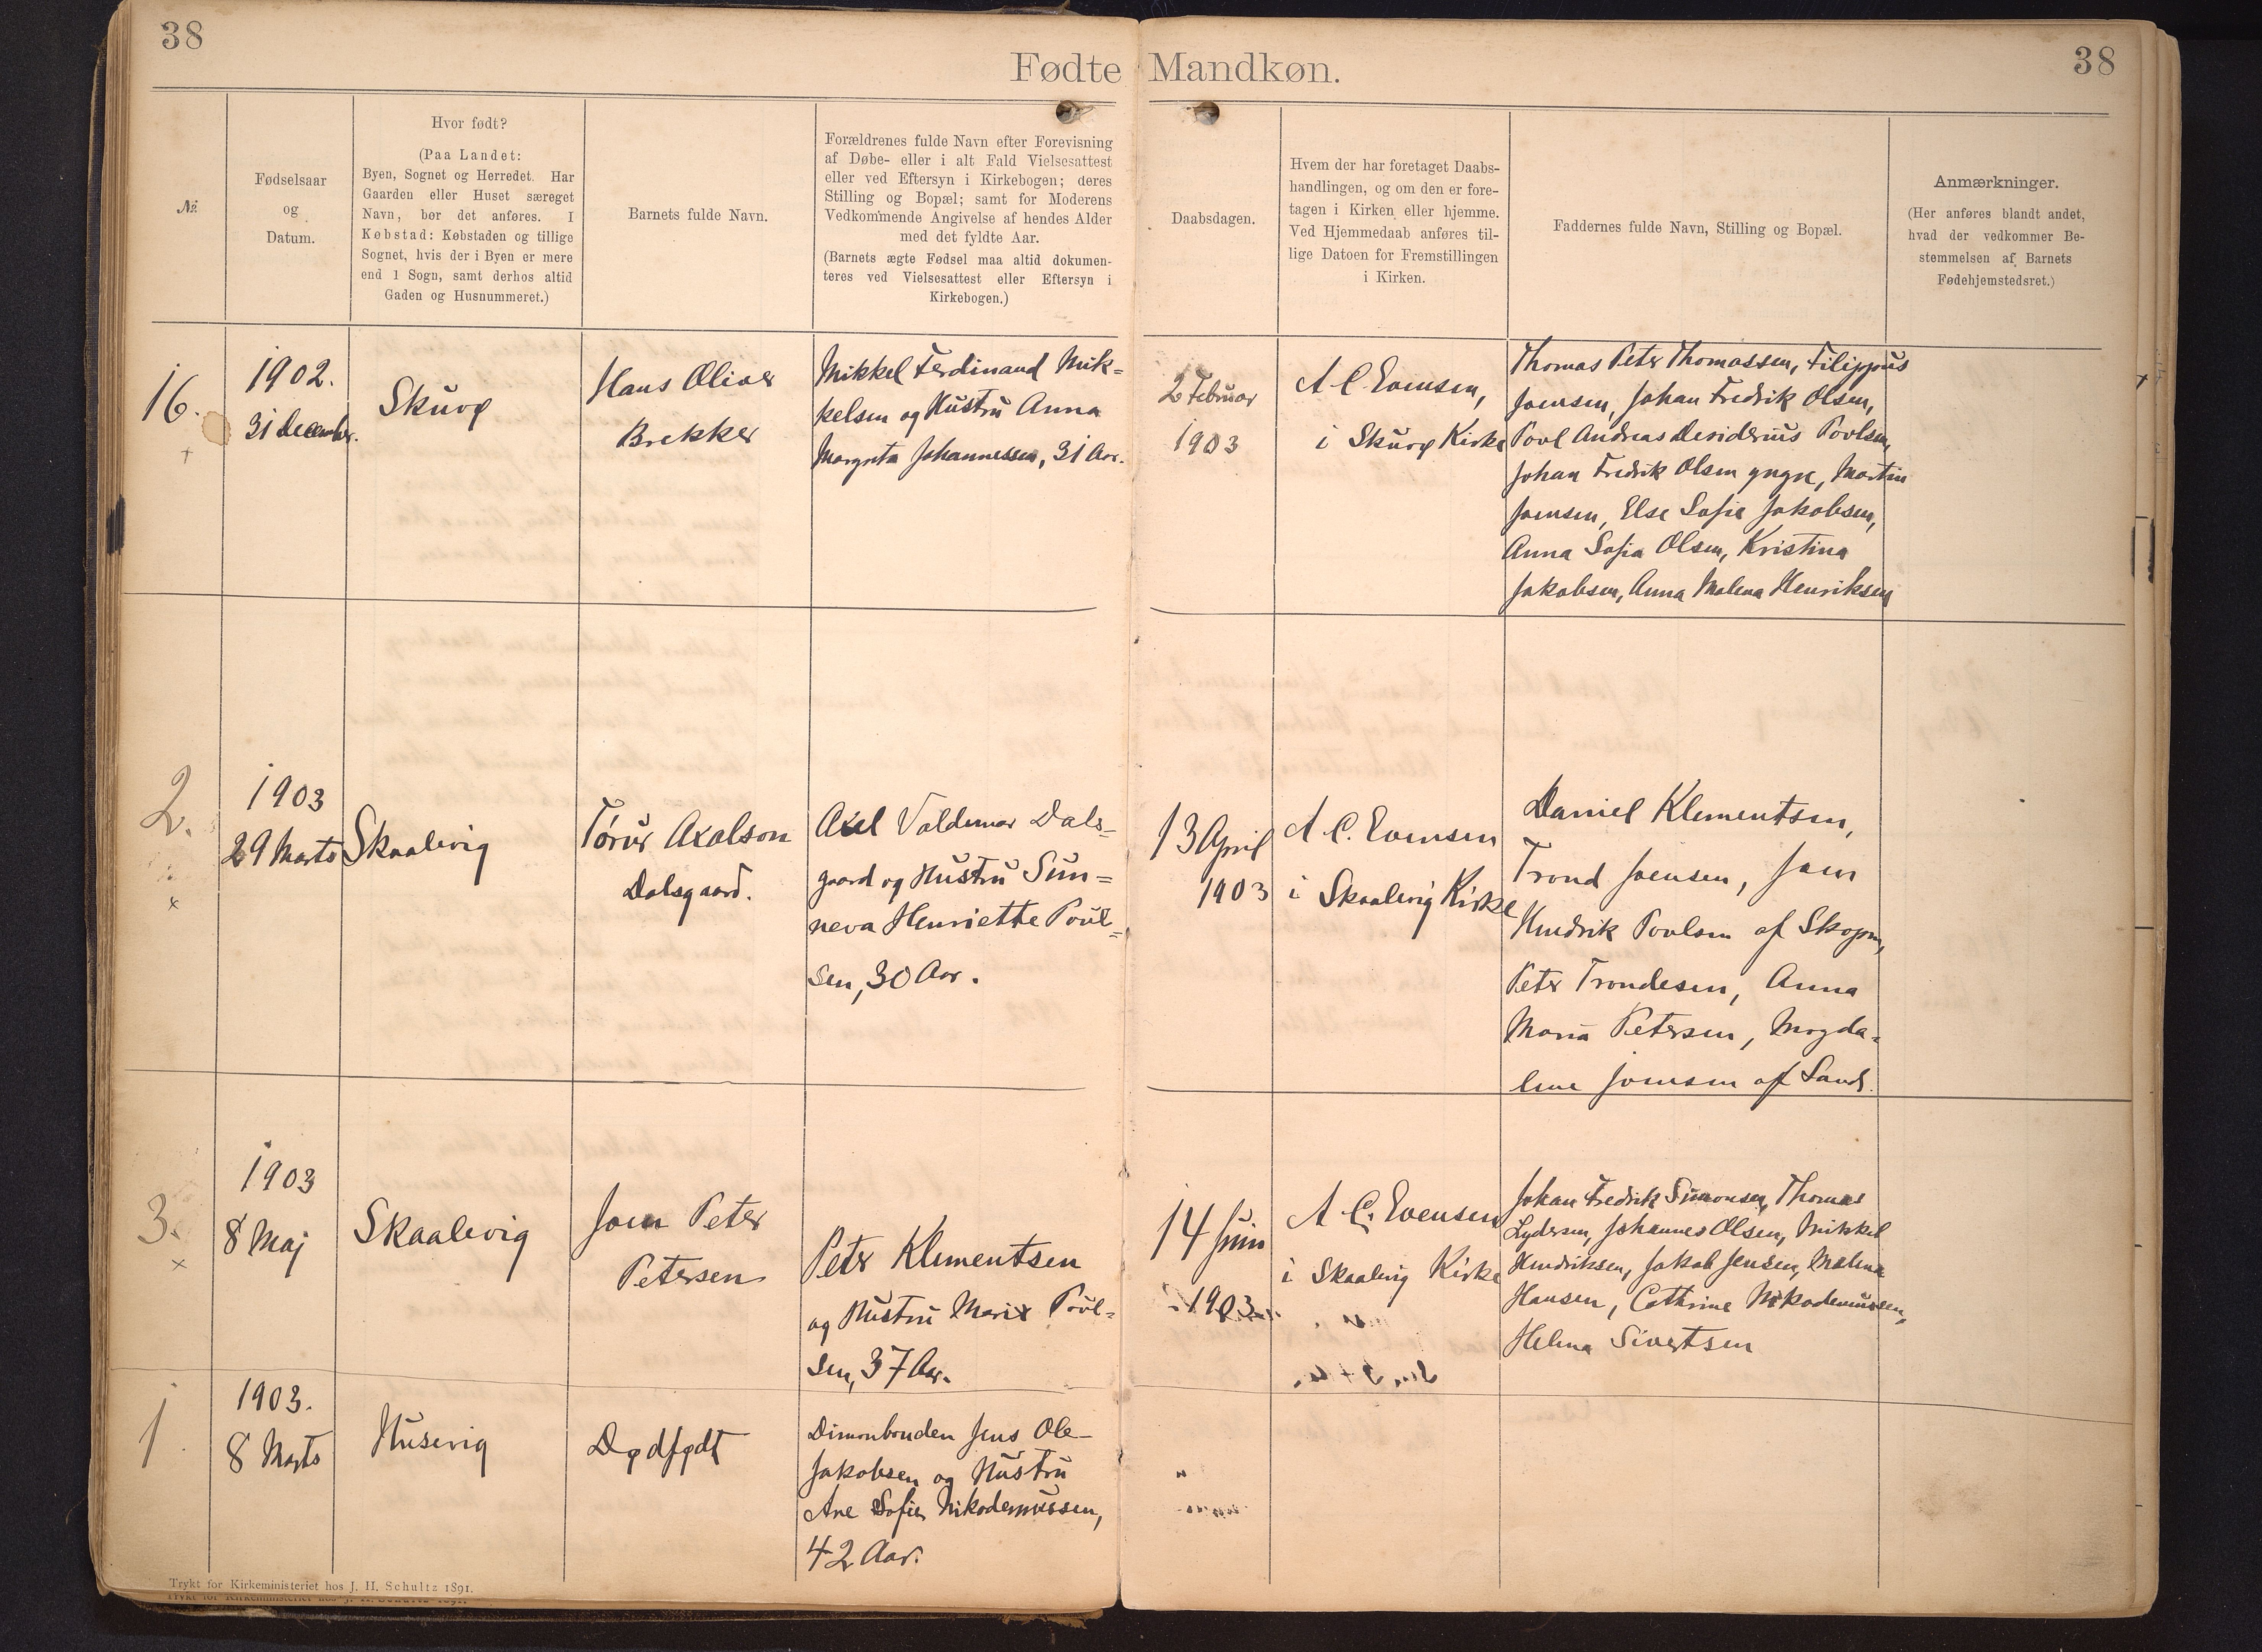 38
Fødte Mandkøn.
38
№
Fødselsaar
og
Datum.
Hvor født?
(Paa Landet:
Byen, Sognet og Herredet. Har
Gaarden eller Huset særeget
Navn, bør det anføres. I
Købstad: Købstaden og tillige
Sognet, hvis der i Byen er mere
end 1 Sogn, samt derhos altid
Gaden og Husnummeret.)
Barnets fulde Navn.
Forældrenes fulde Navn efter Forevisning
af Døbe- eller i alt Fald Vielsesattest
eller ved Eftersyn i Kirkebogen; deres
Stilling og Bopæl; samt for Moderens
Vedkommende Angivelse af hendes Alder
med det fyldte Aar.
(Barnets ægte Fødsel maa altid dokumen-
teres ved Vielsesattest eller Eftersyn i
Kirkebogen.)
Daabsdagen.
Hvem der har foretaget Daabs-
handlingen, og om den er fore-
tagen i Kirken eller hjemme.
Ved Hjemmedaab anføres til-
lige Datoen for Fremstillingen
i Kirken.
Faddernes fulde Navn, Stilling og Bopæl.
Anmærkninger.
(Her anføres blandt andet,
hvad der vedkommer Be-
stemmelsen af Barnets
Fødehjemstedsret.)
16.
1902.
31 December.
Skuvø
Hans Oliver
Brekker
Mikkel Ferdinand Mik=
kelsen og Hustru Anna
Margreta Johannessen, 31 Aar.
2 Februar
1903
A C. Evensen,
i Skuvø Kirke
Thomas Peter Thomassen, Filippus
Joensen, Johan Fredrik Olsen,
Povl Andreas Desiderius Povlsen,
Johan Fredrik Olsen yngre, Martin
Joensen, Else Sofie Jakobsen,
Anna Sofia Olsen, Kristina
Jakobsen, Anna Malena Henriksen
2.
1903
29 Marts
Skaalevig
Tórur Axelson
Dalsgaard.
Axel Valdemar Dals=
gaard og Hustru Sun=
neva Henriette Poul=
sen, 30 Aar.
13 April
1903
A C. Evensen
i Skaalevig Kirke
Daniel Klementsen,
Trond Joensen, Joen
Hendrik Povlsen af Skopen,
Peter Trondesen, Anna
Maria Petersen, Magda=
lene Joensen af Sand.
3.
1903
8 Maj
Skaalevig
Joen Peter
Petersen
Peter Klementsen
og Hustru Marie Poul=
sen, 37 Aar.
14 Juni
1903
A C. Evensen
i Skaalevig Kirke
Johan Fredrik Simonsen, Thomas
Lydersen, Johannes Olsen, Mikkel
Hendriksen, Jakob Jensen, Malena
Hansen, Cathrine Nikodemussen,
Helena Sivertsen
1.
1903.
8 Marts
Husevig
Dødfødt
Dimonbonden Jens Ole
Jakobsen og Hustru
Ane Sofie Nikodemussen,
42 Aar.
"
Trykt for Kirkeministeriet hos J. H. Schultz 1891.